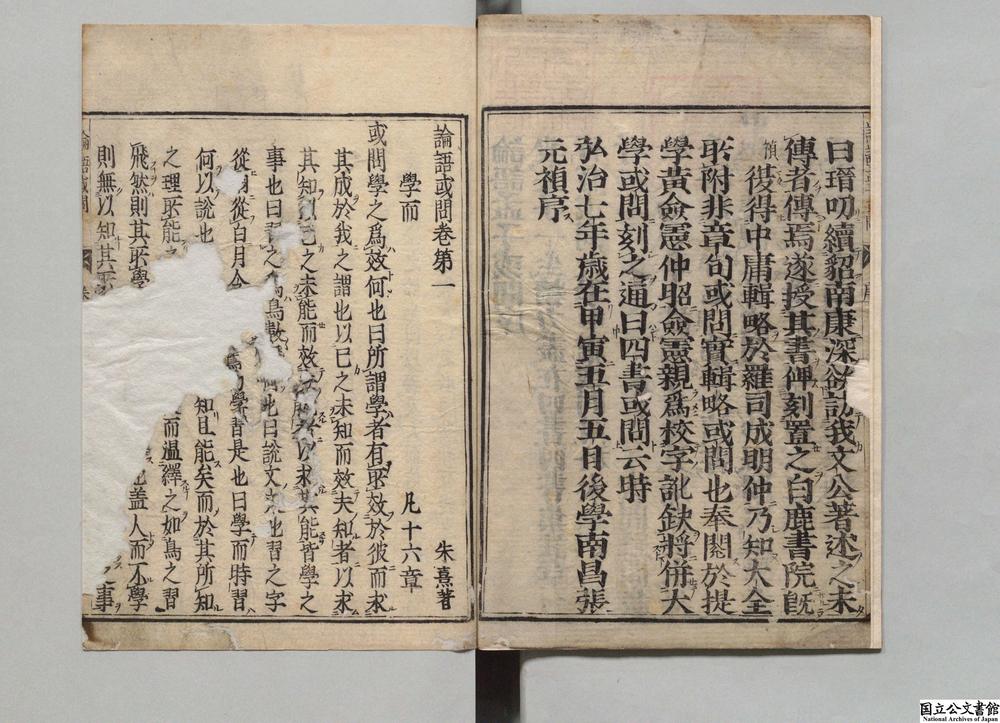 曰瑨叨續貂南康深欲訪我文公著述之未
傳者傳焉遂授其書俾刻置之白鹿書院既
禎後得中庸輯略於羅司成明仲乃知大全
所附非章句或問實輯略或問也奉閱於提
學黃僉憲仲昭僉憲親為校字訛缺將併大
學或問刻之通曰四書或問云時
弘治七年歲在甲寅五月五日後學南昌張
元禎序
論語或問卷第一
朱熹著
學而
凡十六章
或問學之爲效何也曰所謂學者有所效於彼而求
其成於我之謂也以己之未知而效夫知者以求
其知以己之未能而效 者以求其能皆學之
事也曰習之 爲鳥數 何也曰說文 也習之字
從 從白月令 爲乃學習是也曰學而時習
何以說也 知且能矣而於其所知
之理所能之 而溫繹之如鳥之習
飛然則其所學 也蓋人而不學
則無以知其所 事
論語或問
国立公文書館
National Archives of Japan